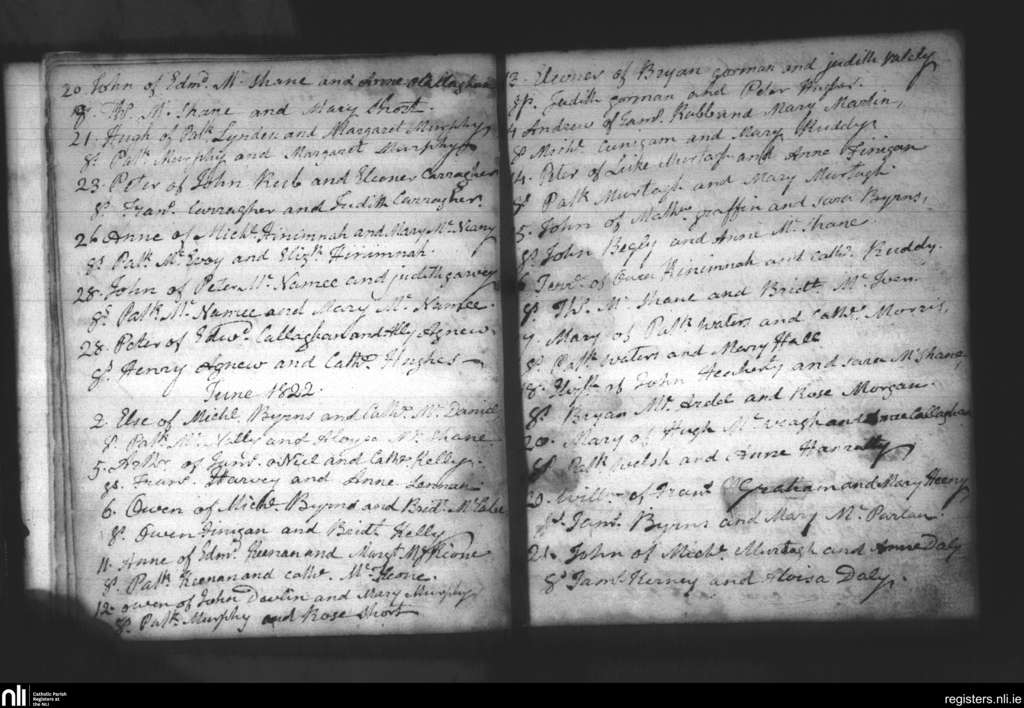 20 John of Edmd. Mc. Shane and Anne Callaghan
Sp. Ths. Mc. Shane and Mary Short.
21. Hugh of Patk. Lynden and Margaret Murphy,
Sp. Patk. Murphy and Margaret Murphy
23. Peter of John and Eleoner Carragher
Sp. Frans. Carragher and Judith Carragher.
26 Anne of Michl. Hinimnah and Mary Mc. Neany
Sp. Patk. Mc. Evoy and Elizh. Hinimnah.
28. John of Peter Mc. Namee and judith garvey
Sp. Patk. Mc. Namee and Mary Mc. Namee.
28. Peter of Edwd. Callaghan and Ally Agnew.
Sp. Henry Agnew and Cathe. Hughes
June 1822
2. Else of Michl. Byrns and Cathe. Mc. Daniel
Sp. Patk. Mc. and Mc. Shane
5. of Jams. oNiel and Cathe. Kelly.
Sp. Frans. Harvey and Anne
6. Owen of Michl. Byrns and Bridt. Mc.
Sp. Owen Finigan and Bridt. Kelly
11. Anne of Edmd. Keenan and Margt. Mc.
Sp. Patk. Keenan and Cathe. Mc.
12. owen of John Devlin and Mary Murphy,
Sp. Patk. Murphy and Rose Short
13. Eleoner of Bryan gorman and judith
Sp. Judith gorman and Peter Hughes.
Andrew of Jams. Rubb and Mary Martin,
Sp. Michl. Cunigam and Mary Ruddy.
14. Peter of Luke Murtagh and Anne Finigan
Sp. Patk. Murtagh and Mary Murtagh
5. John of Mathw. graffin and sara Byrns,
Sp. John Begly and Anne Mc. Shane
6 of Owen Hinimnah and Cathe. Ruddy.
Sp. Ths. Mc. Shane and Bridt. Mc.
7. Mary of Patk. Waters and Cathe. Morris,
Sp. Patk. Waters and Mary Hall
8. of John and sara Mc. Shane,
Sp. Bryan Mc. Ardel and Rose Morgan.
20. Mary of Hugh Mc. Veagh and Anne Callaghan
Sp. Patk. Welsh and Anne Harratty
20. Willm. of Frans. Graham and Mary Heeny
Sp. Jams. Byrns and Mary Mc. Parlan.
21. John of Michl. Murtagh and Anne Daly
Sp. Jams. Kerney and Aloisa Daly.
nli
Catholic Parish
Registers at
the NLI
registers.nli.ie